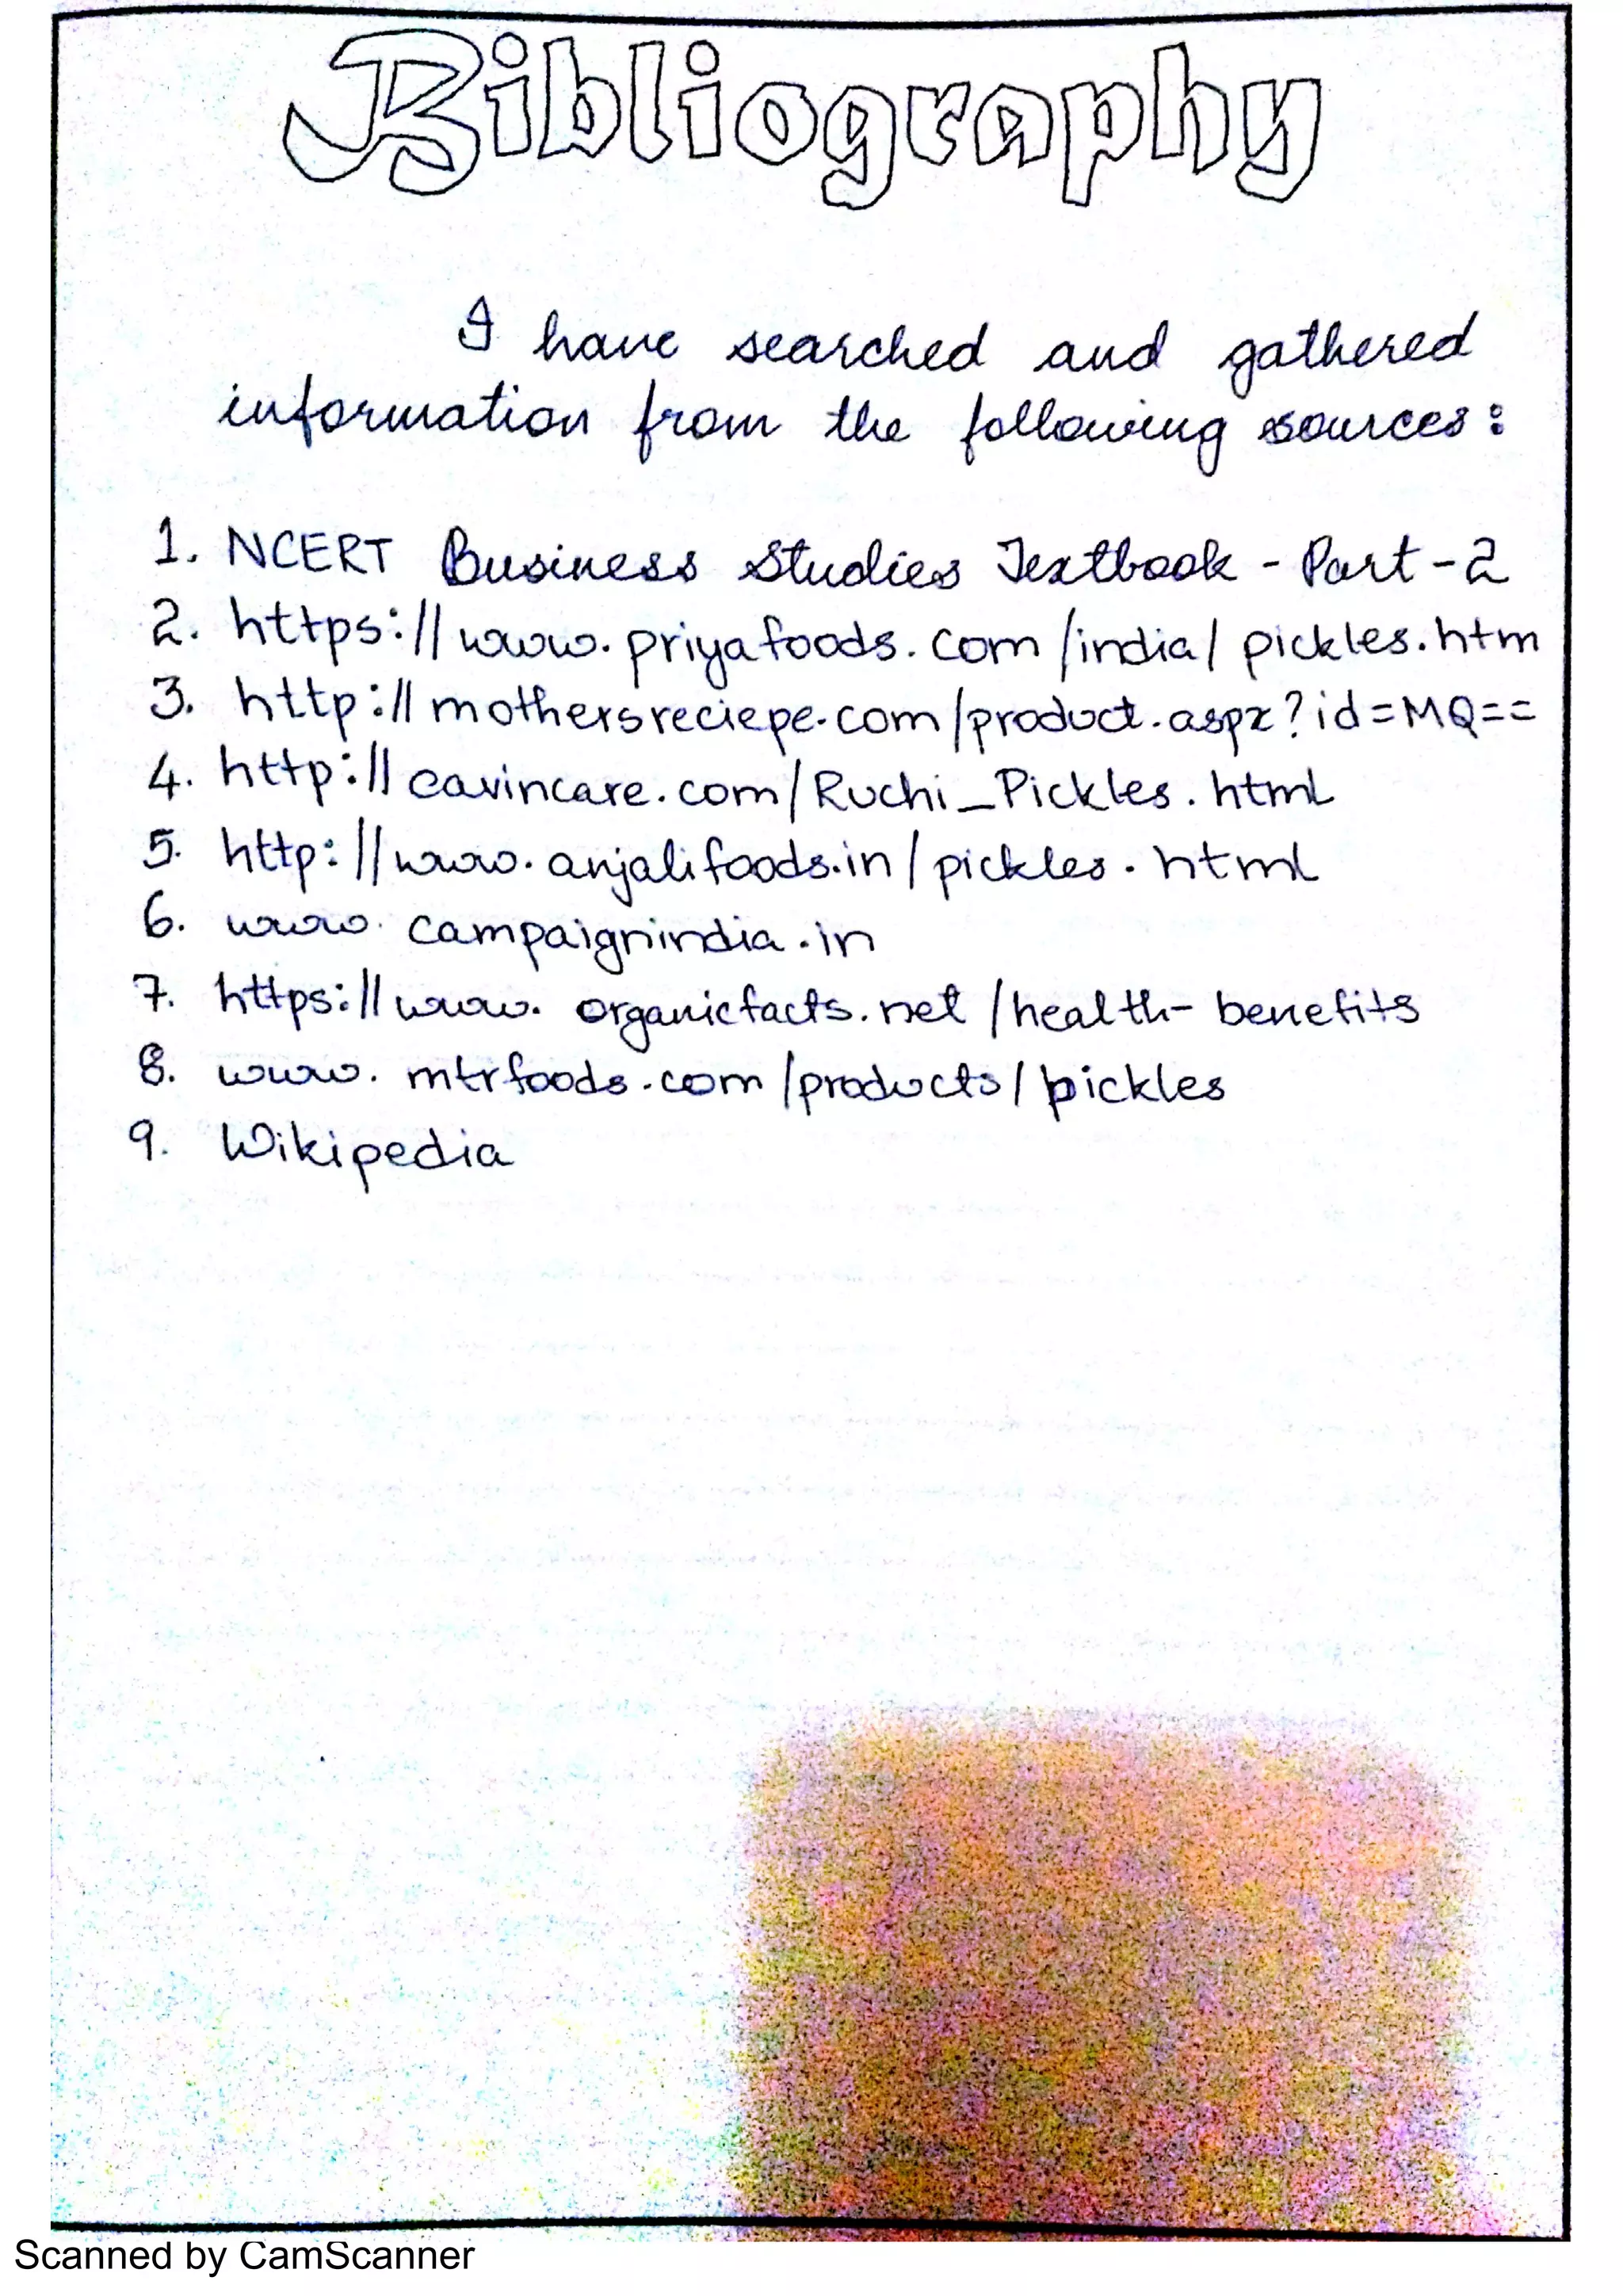 Bibliography
I have searched and gathered
information from the following sources:
1. NCERT Business Studies Textbook - Part - 2
2. https://www.priyafoods.com/india/pickles.htm
3. http://mothersreciepe.com/product.aspx?id=MQ==
4. http://cavincare.com/Ruchi_Pickles.html
5. http://www.anjalifoods.in/pickles.html
6. www.campaignindia.in
7. https://www.organicfacts.net/health-benefits
8. www.mtrfoods.com/products/pickles
9. Wikipedia
Scanned by CamScanner